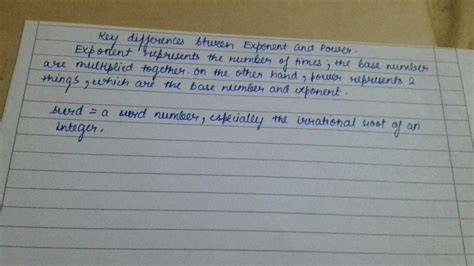 Key differences btween Exponent and Power.
Exponent represents the number of times, the base number
are multiplied together. On the other hand, power represents 2
things, which are the base number and exponent.
surd = a surd number, especially the irrational root of an
integer.